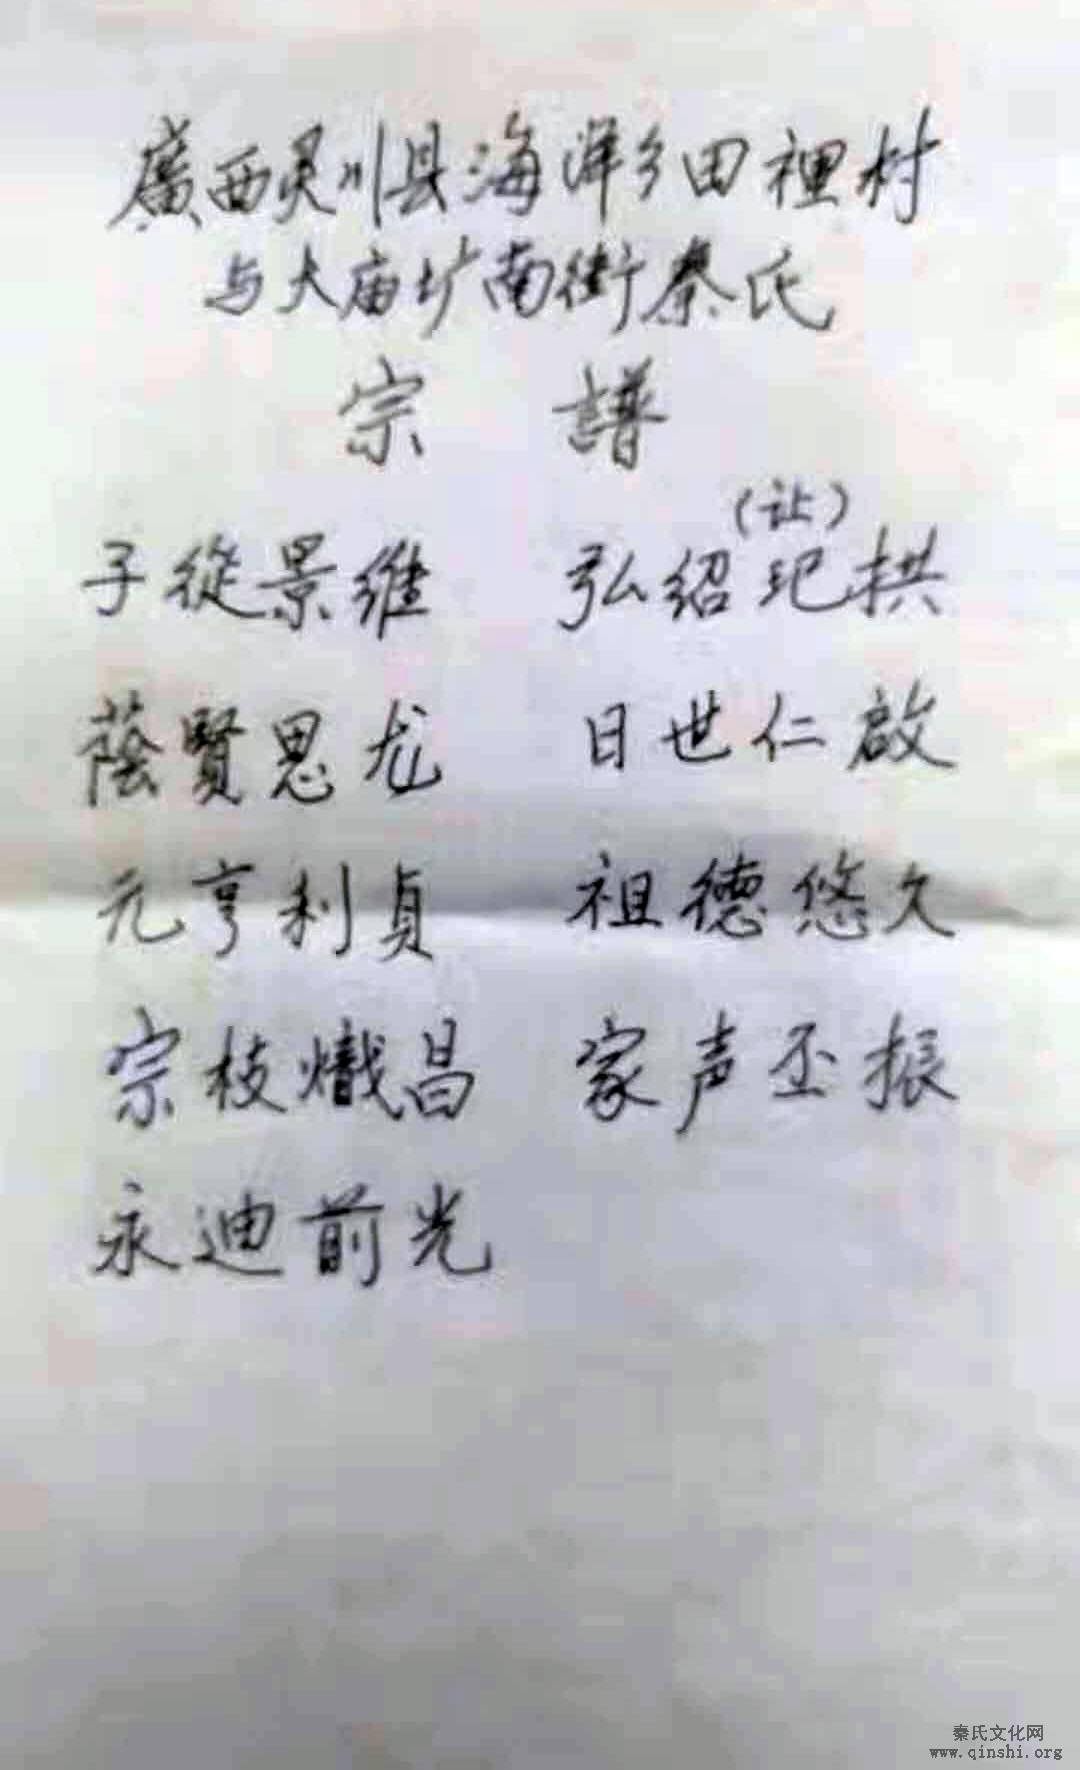 廣西灵川县海洋乡田裡村
与大庙圹南街秦氏
宗 譜
(让)
子從景維 弘紹玘拱
蔭賢思尤 日世仁啟
元亨利貞 祖德悠久
宗枝熾昌 家声丕振
永迪前光
秦氏文化网
www.qinshi.org